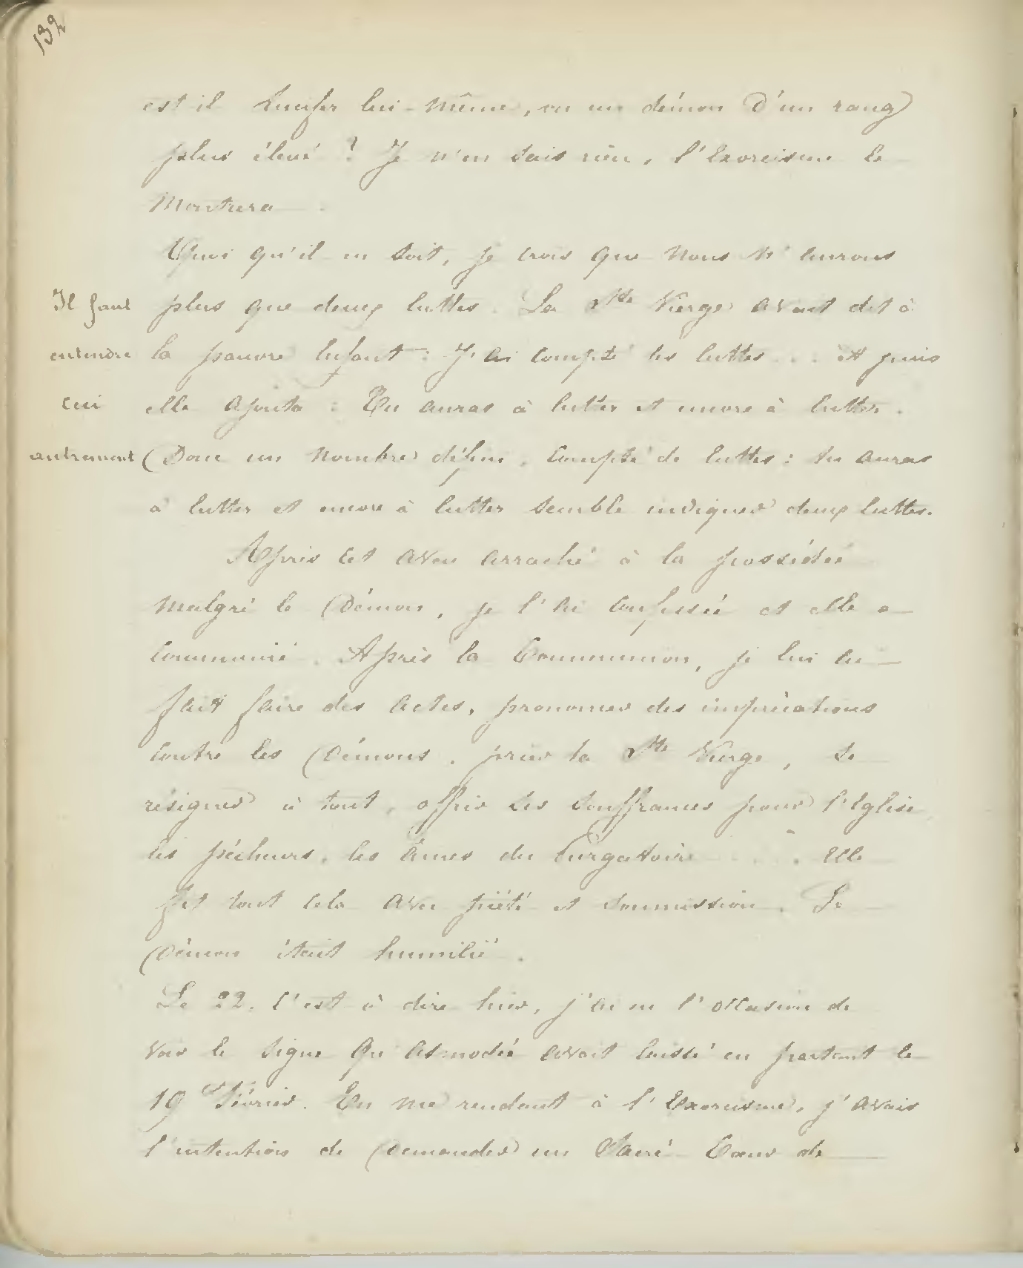 132
est-il Lucifer lui-même, ou un démon d'un rang
plus élevé ? Je n'en sais rien, l'Exorcisme le
montrera.
Quoi qu'il en soit, je crois que nous n'aurons
plus que deux luttes. La Ste Vierge avait dit à
la pauvre Enfant : J'ai compté les luttes ... et puis
elle ajouta : Tu auras à lutter et encore à lutter.
(Donc un nombre défini, compté de luttes : tu auras
à lutter et encore à lutter semble indiquer deux luttes.
Il faut
entendre
ceci
autrement
Après cet aveu arraché à la possédée
malgré le Démon, je l'ai confessée et elle a
communié. Après la Communion, je lui ai
fait faire des actes, prononcer des imprécations
contre les Démons, prier la Ste Vierge, se
résigner à tout, offrir ses souffrances pour l'Eglise
les pécheurs, les âmes du Purgatoire .... Elle
fit tout cela avec piété et soumission. Le
Démon était humilié.
Le 22, c'est à dire hier, j'ai eu l'occasion de
voir le signe qu'Asmodée avait laissé en partant le
19 Février. En me rendant à l'Exorcisme, j'avais
l'intention de demander un Sacré Coeur de